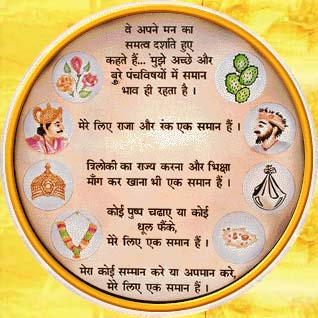 वे अपने मन का
समत्व दर्शाते हुए
कहते हैं... मुझे अच्छे और
बुरे पंचविषयों में समान
भाव ही रहता है ।
मेरे लिए राजा और रंक एक समान हैं ।
त्रिलोकी का राज्य करना और भिक्षा
माँग कर खाना भी एक समान हैं ।
कोई पुष्प चढाए या कोई
धूल फैंके,
मेरे लिए एक समान हैं ।
मेरा कोई सम्मान करे या अपमान करे,
मेरे लिए एक समान हैं ।